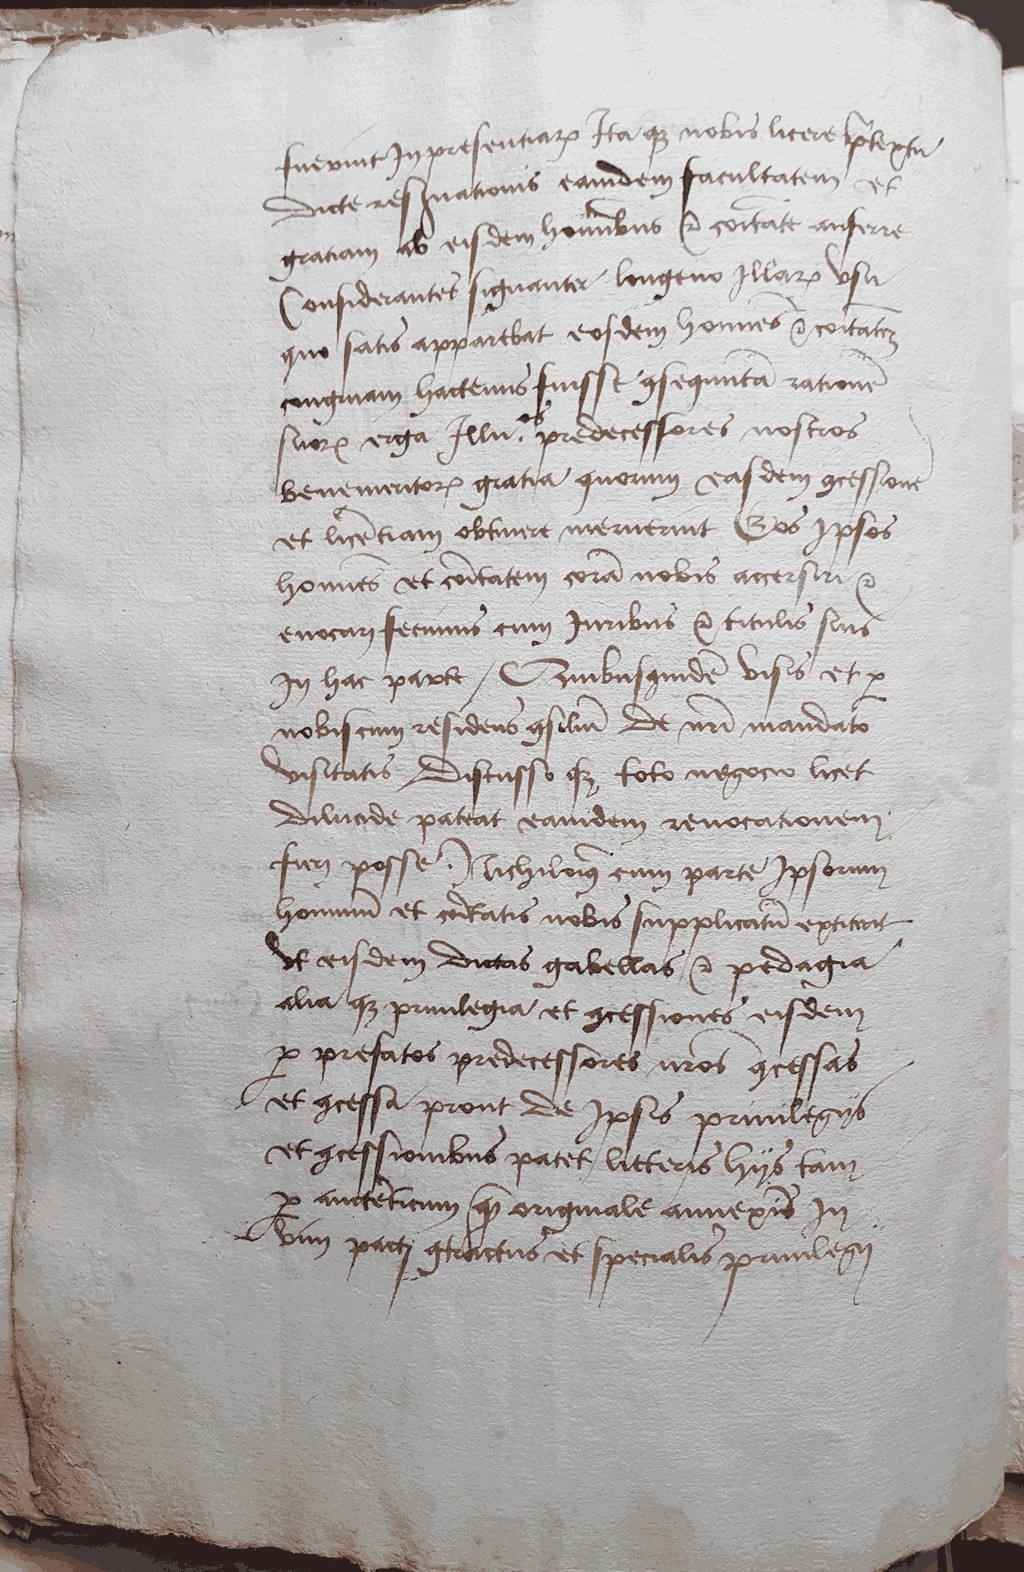 fuerint In presentiarꝝ Ita qꝫ nobis licere p̄textu
dicte resignationis eamdem facultatem et
gratiam ab eisdem hoībus ⁊ coītate auferre
Considerantes signanter longeuo Illarꝝ vsu
quo satis apparebat eosdem homies ⁊ coītatēȝ
congruam hactenus fuisse ꝯsequutā rationē
suorꝝ erga Illu.os predecessores nostros
benemeritorꝝ gratia quorum easdem ꝯcessione
et licētiam obtinere meruerint Eos Ipsos
homīes et coītatem corā nobis accersiri ⁊
euocari fecimus cum Iuribus ⁊ titulis suis
In hac parte / Quibusquidē visis et ꝑ
nobiscum residens ꝯsiliū de nrī mandato
visitatis discusso qꝫ toto negocio licet
dilucide pateat eamdem reuocationem
fieri posse . Nichiloīꝰ cum parte Ipsorum
hominū et coītatis nobis supplicatū extiterit
vt eisdem dictas gabellas ⁊ pedagia
alia qꝫ priuilegia et ꝯcessiones eisdem
ꝑ prefatos predecessores nr̄os ꝯcessas
et ꝯcessa prout de Ipsis priuilegijs
et ꝯcessionibus patet litteris hijs tam
ꝑ autēticum qȝ originale annexis In
vim pacti ꝯtractus et specialis priuilegij